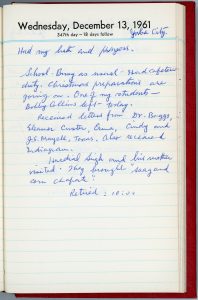 Wednesday, December 13, 1961
347th day — 18 days follow
Yuba City.
Had my bath and prayers.
School - Busy as usual - Had cafeteria
duty. Christmas preparations are
going on. One of my students -
Bobby Collins left - today.
Received letters from Dr. Baggs,
Eleanor Custer, Anna, Cindy and
J.S. , Texas. Also received
Indiagram.
Singh and his mother
visited. They brought "saag and
corn chapati".
Retired: 10:00